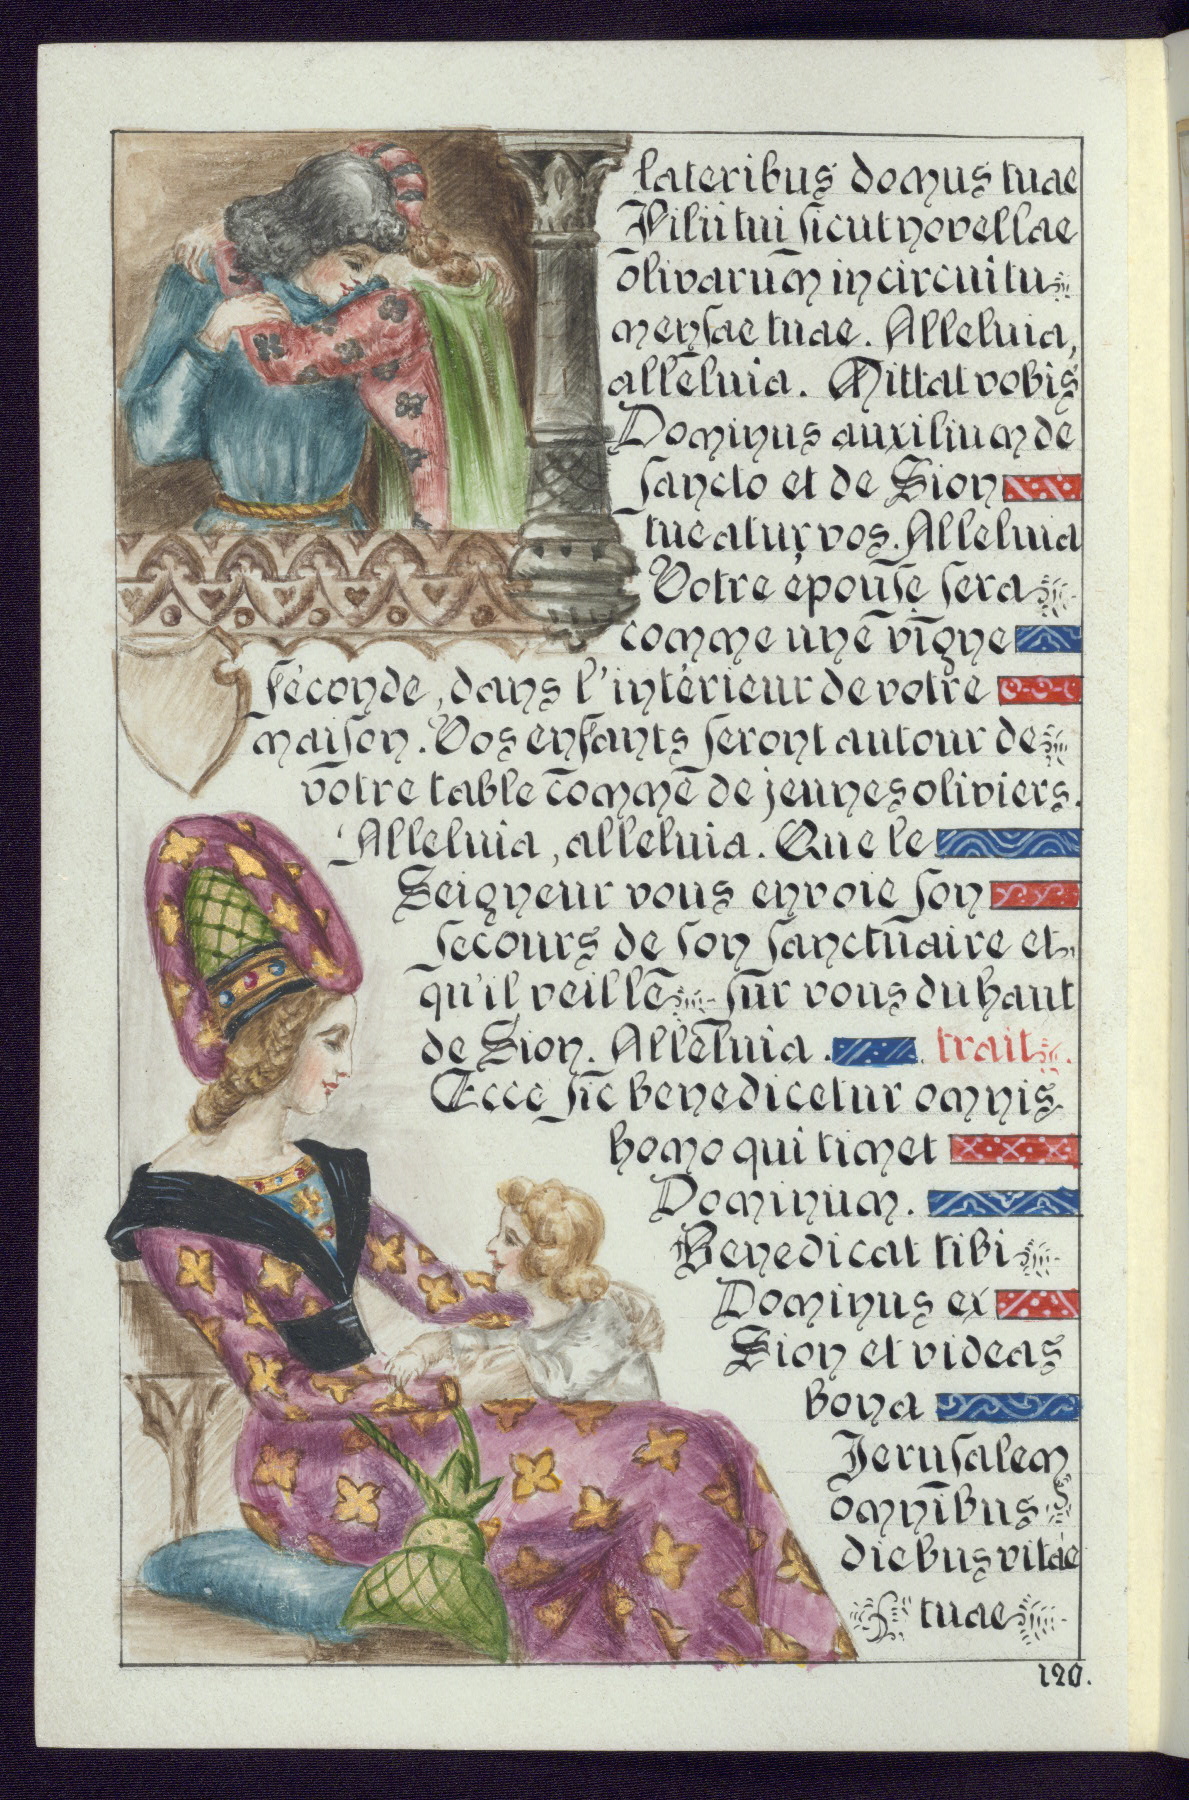 lateribus domus tuae
Filii tui sicut novellae
olivarum in circuitu
mensae tuae. Alleluia,
alleluia. Mittat vobis
Dominus auxilium de
sancto et de Sion
tueatur vos. Alleluia
Votre épouse sera
comme une vigne
féconde, dans l'intérieur de votre
maison. Vos enfants seront autour de
votre table comme de jeunes oliviers.
Alleluia, alleluia. Que le
Seigneur vous envoie son
secours de son sanctuaire et
qu'il veille sur vous du haut
de Sion. Alleluia. trait.
Ecce sic benedicetur omnis
homo qui timet
Dominum.
Benedicat tibi
Dominus ex
Sion et videas
bona
Jerusalem
omnibus
diebus vitae
tuae
120.